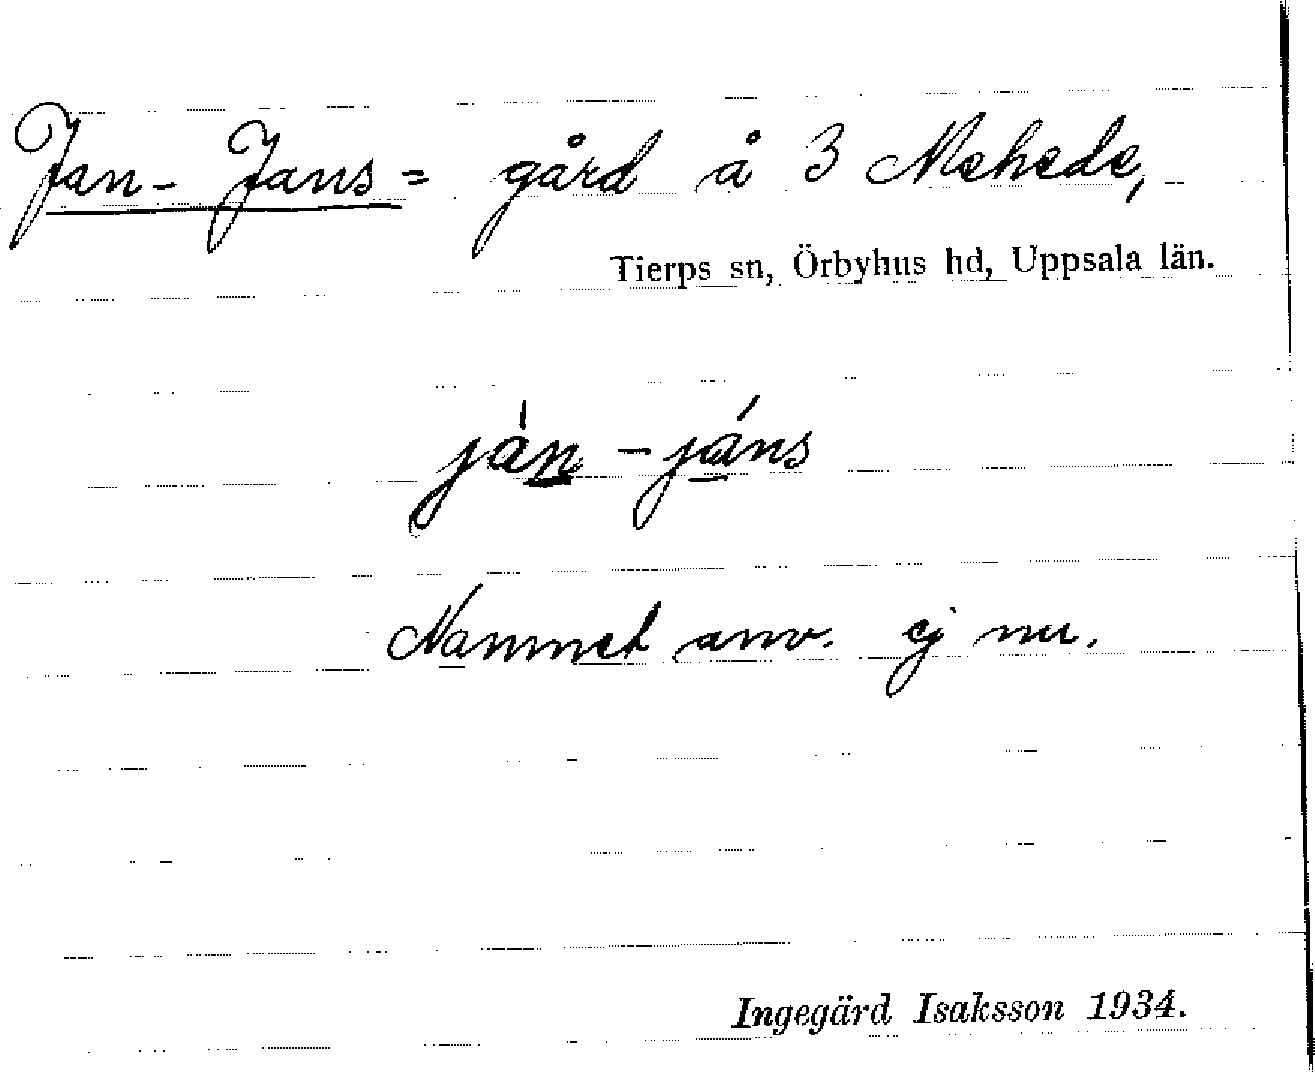 Jan-Jans= gård å 3 Mehede,
Tierps sn, Örbyhus hd, Uppsala län.
jàn - jáns
Namnet anv. ej nu.
Ingegärd Isaksson 1934.